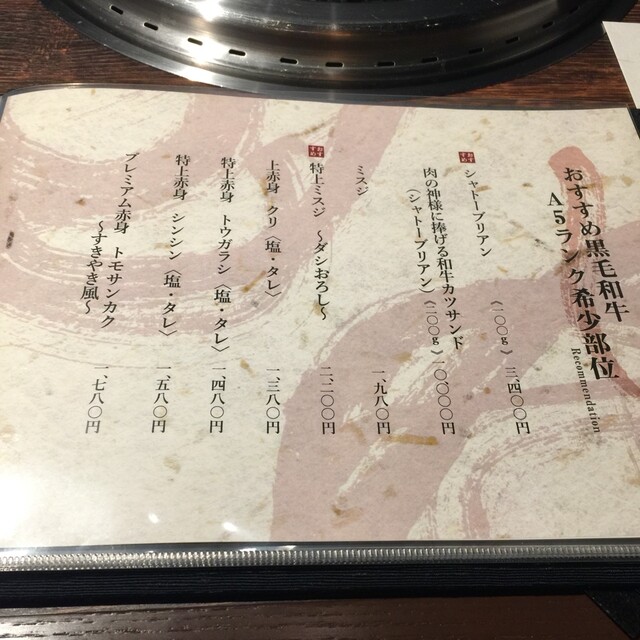 おすすめ黒毛和牛
A5ランク希少部位
Recommendation
おすすめ
シャトーブリアン 〈一〇〇g〉 三、二四〇〇円
肉の神様に捧げる和牛カツサンド
〈シャトーブリアン〉 〈二〇〇g〉 一〇、〇〇〇円
ミスジ 一、九八〇円
おすすめ
特上ミスジ 〜ダシおろし〜 二、二〇〇円
上赤身 クリ〈塩・タレ〉 一、三八〇円
特上赤身 トウガラシ〈塩・タレ〉 一、四八〇円
特上赤身 シンシン〈塩・タレ〉 一、五八〇円
プレミアム赤身 トモサンカク
〜すきやき風〜 一、七八〇円